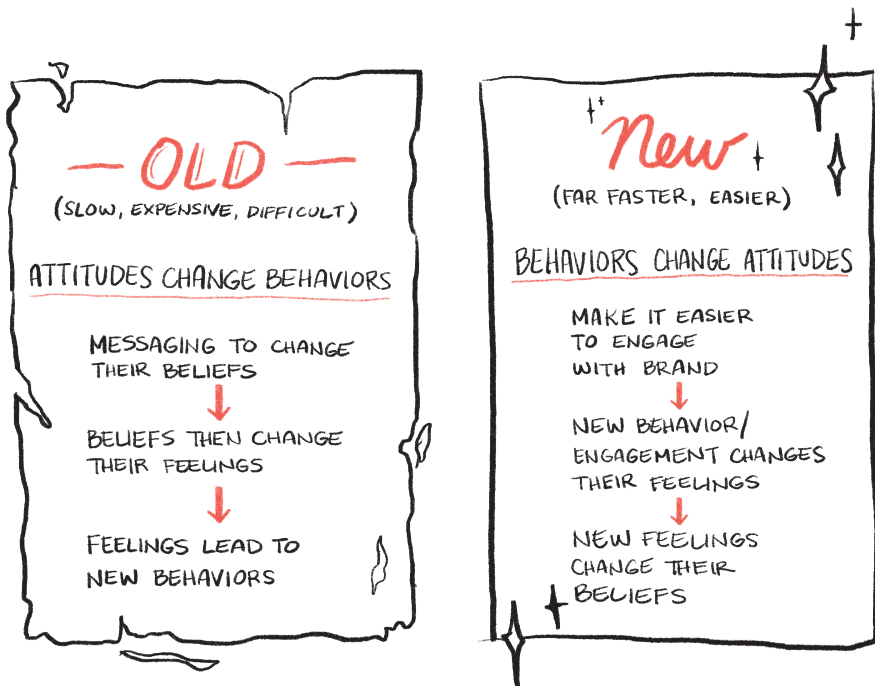 OLD
(SLOW, EXPENSIVE, DIFFICULT)
ATTITUDES CHANGE BEHAVIORS
MESSAGING TO CHANGE
THEIR BELIEFS
BELIEFS THEN CHANGE
THEIR FEELINGS
FEELINGS LEAD TO
NEW BEHAVIORS
New
(FAR FASTER, EASIER)
BEHAVIORS CHANGE ATTITUDES
MAKE IT EASIER
TO ENGAGE
WITH BRAND
NEW BEHAVIOR/
ENGAGEMENT CHANGES
THEIR FEELINGS
NEW FEELINGS
CHANGE THEIR
BELIEFS